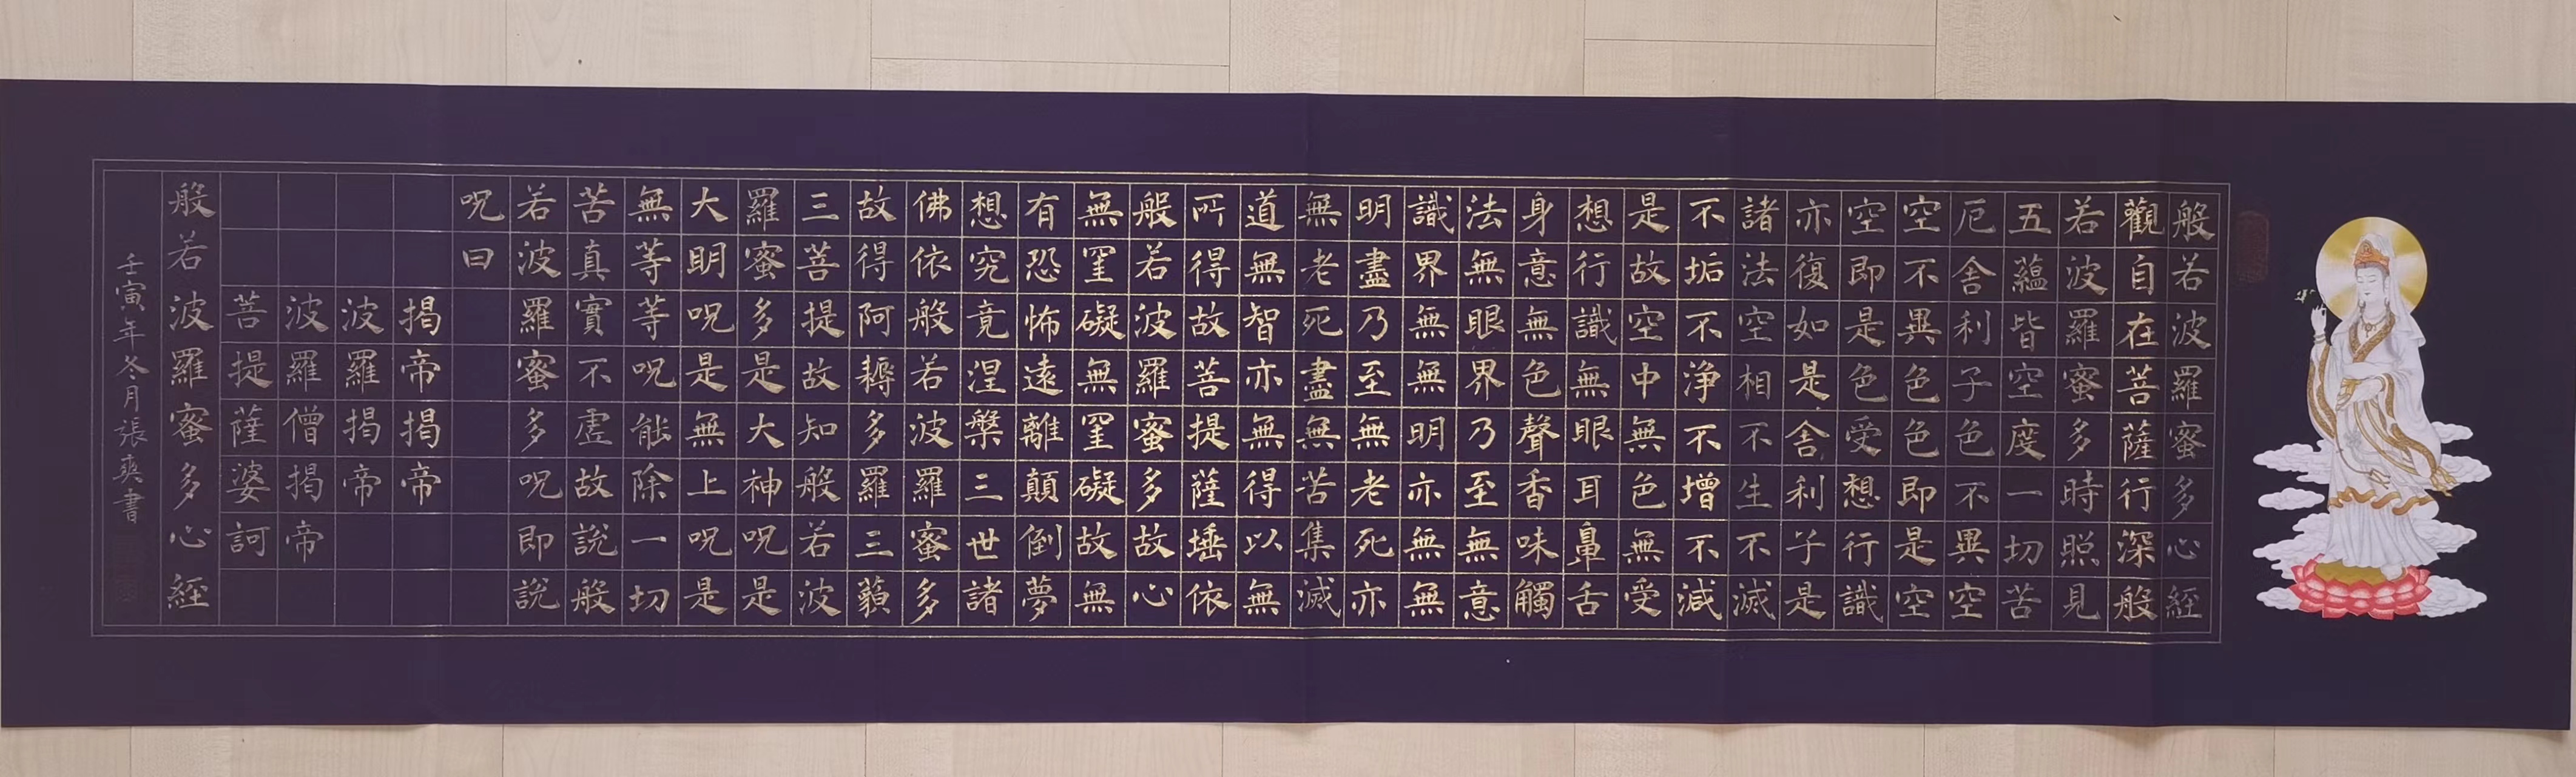 般若波羅蜜多心經
觀自在菩薩行深般
若波羅蜜多時照見
五蘊皆空度一切苦
厄舍利子色不異空
空不異色色即是空
空即是色受想行識
亦復如是舍利子是
諸法空相不生不滅
不垢不淨不增不減
是故空中無色無受
想行識無眼耳鼻舌
身意無色聲香味觸
法無眼界乃至無意
識界無無明亦無無
明盡乃至無老死亦
無老死盡無苦集滅
道無智亦無得以無
所得故菩提薩埵依
般若波羅蜜多故心
無罣礙無罣礙故無
有恐怖遠離顛倒夢
想究竟涅槃三世諸
佛依般若波羅蜜多
故得阿耨多羅三藐
三菩提故知般若波
羅蜜多是大神呪是
大明呪是無上呪是
無等等呪能除一切
苦真實不虛故說般
若波羅蜜多呪即說
呪曰
揭帝揭帝
波羅揭帝
波羅僧揭帝
菩提薩婆訶
般若波羅蜜多心經
壬寅年冬月張爽書